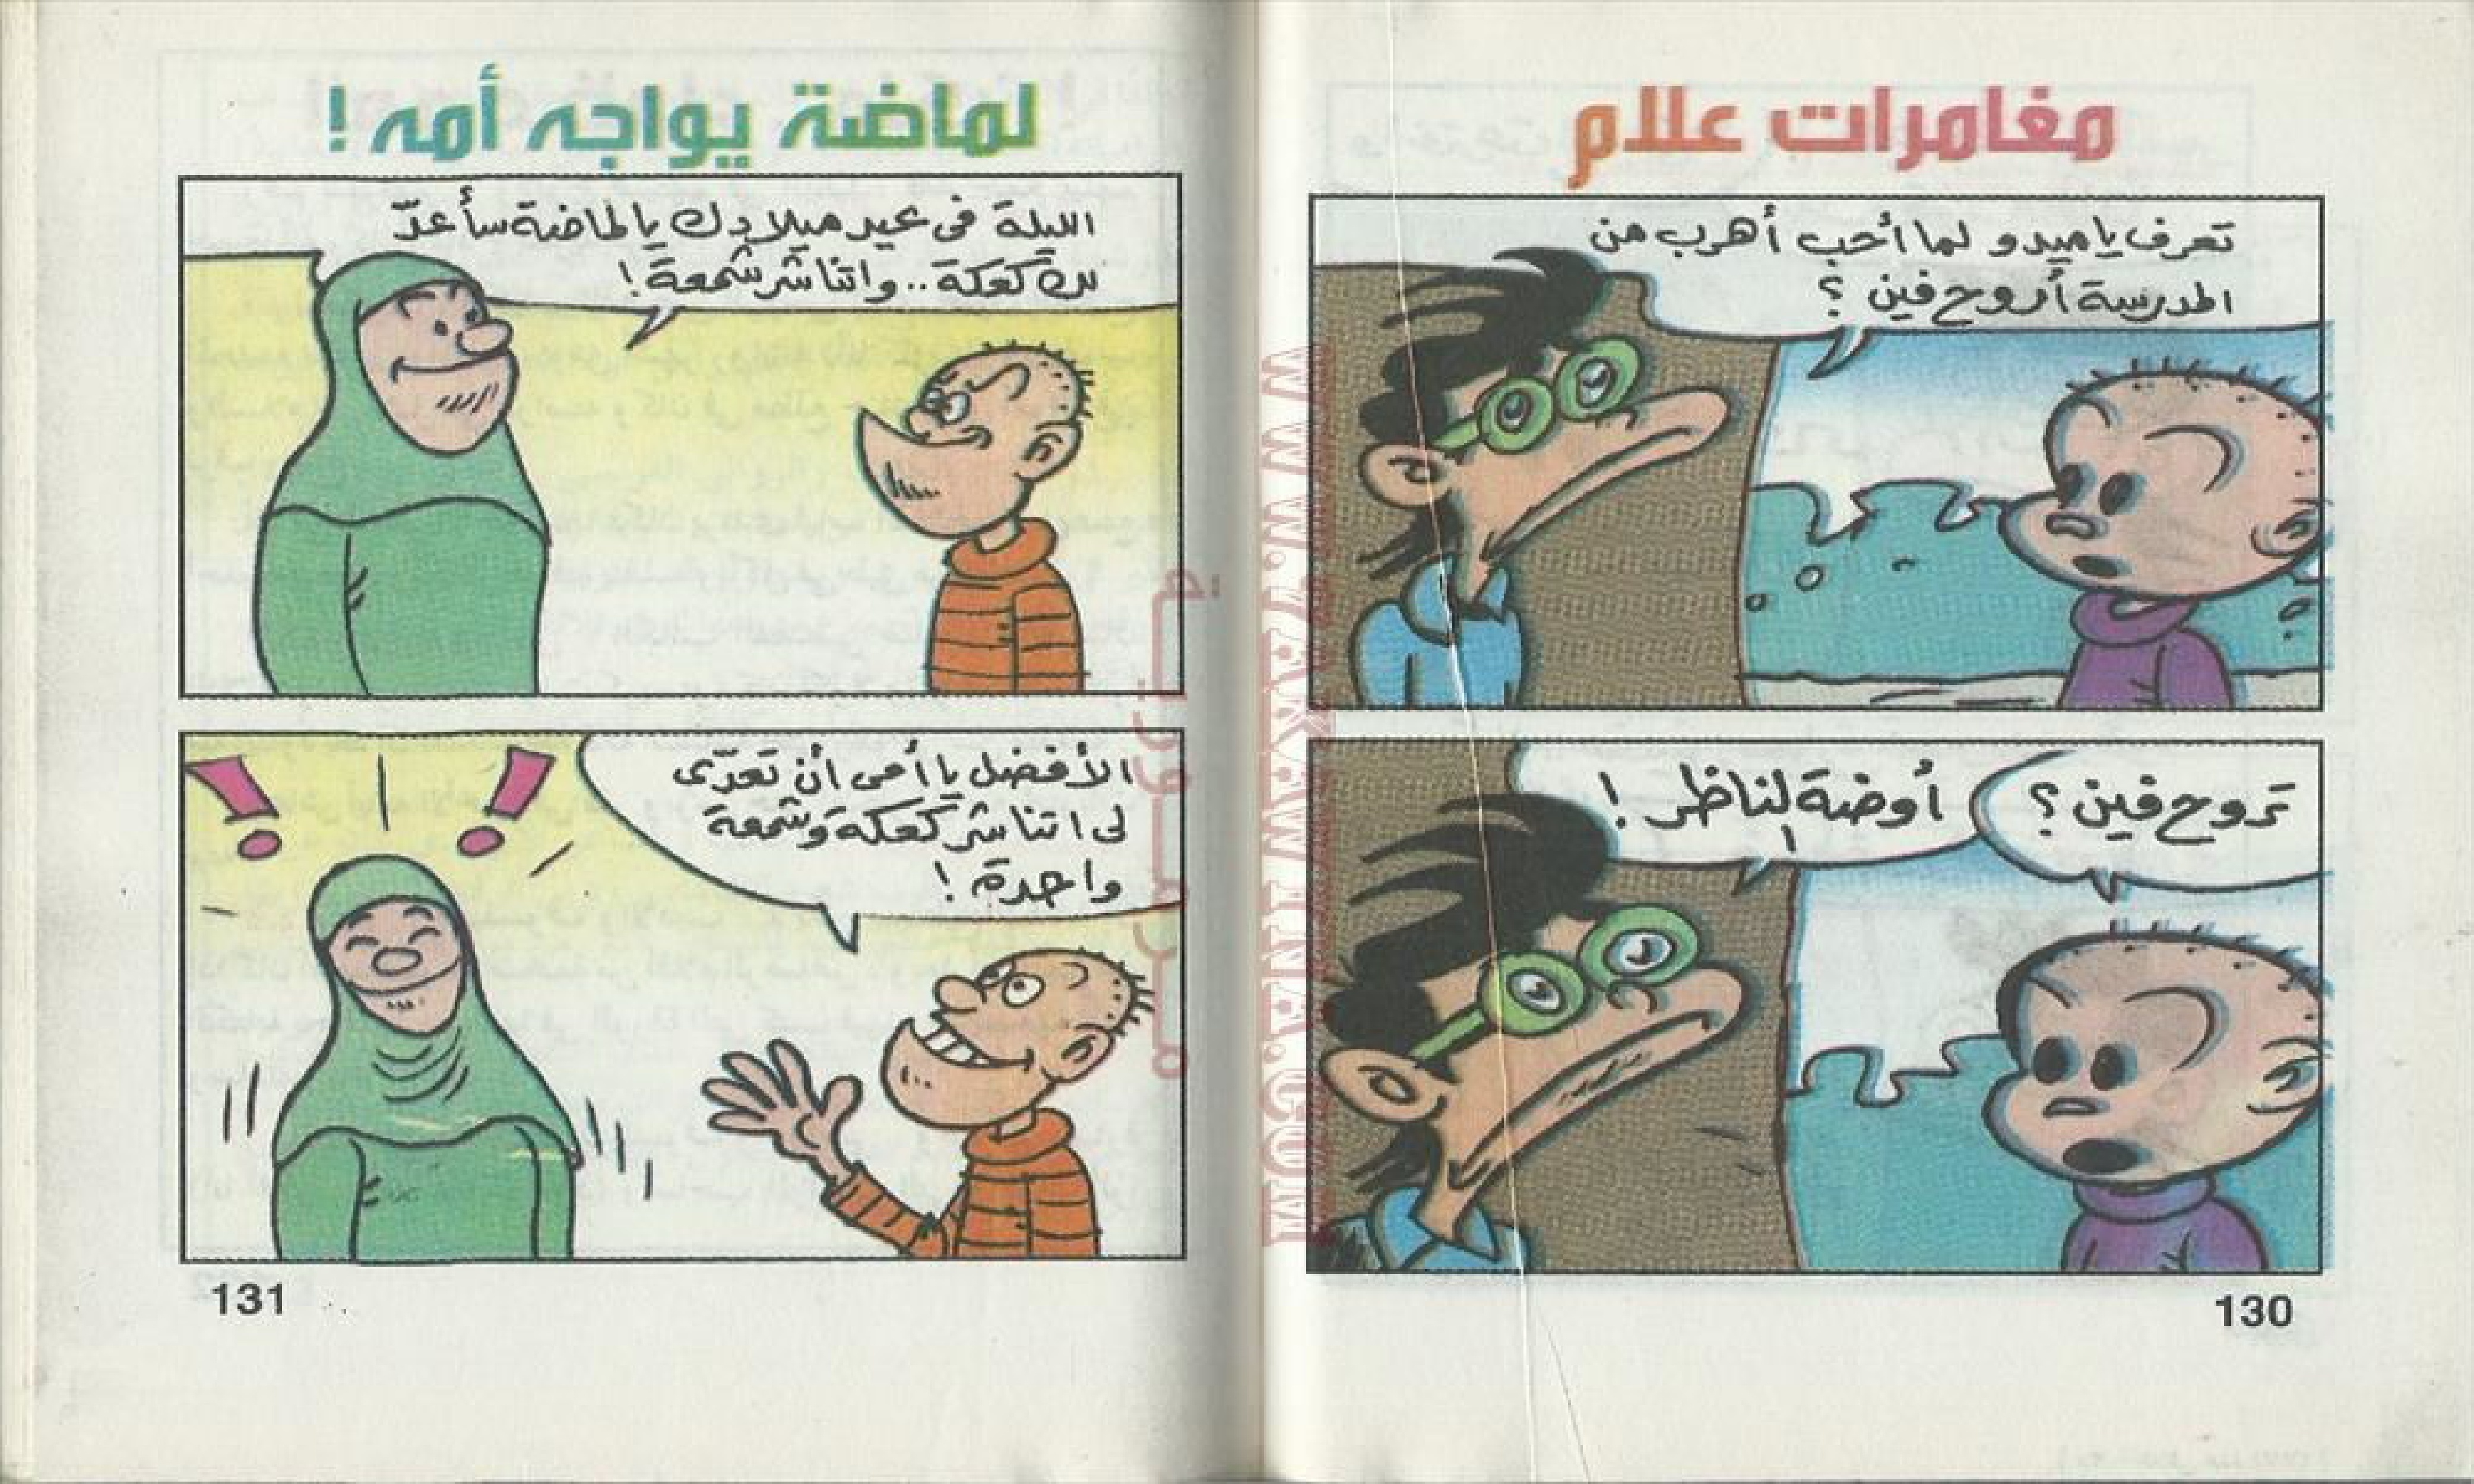 مغامرات علام
تعرف ياميدو لما أحب أهرب من
المدرسة أروح فين ؟
تروح فين ؟
أوضة الناظر !
130
لماضة يواجه أمه !
الليلة فى عيد ميلادك يا لماضة سأعدّ
لك كعكة .. واتناشر شمعة !
الأفضل يا أمى أن تعدّى
لى اتناشر كعكة وشمعة
واحدة !
131